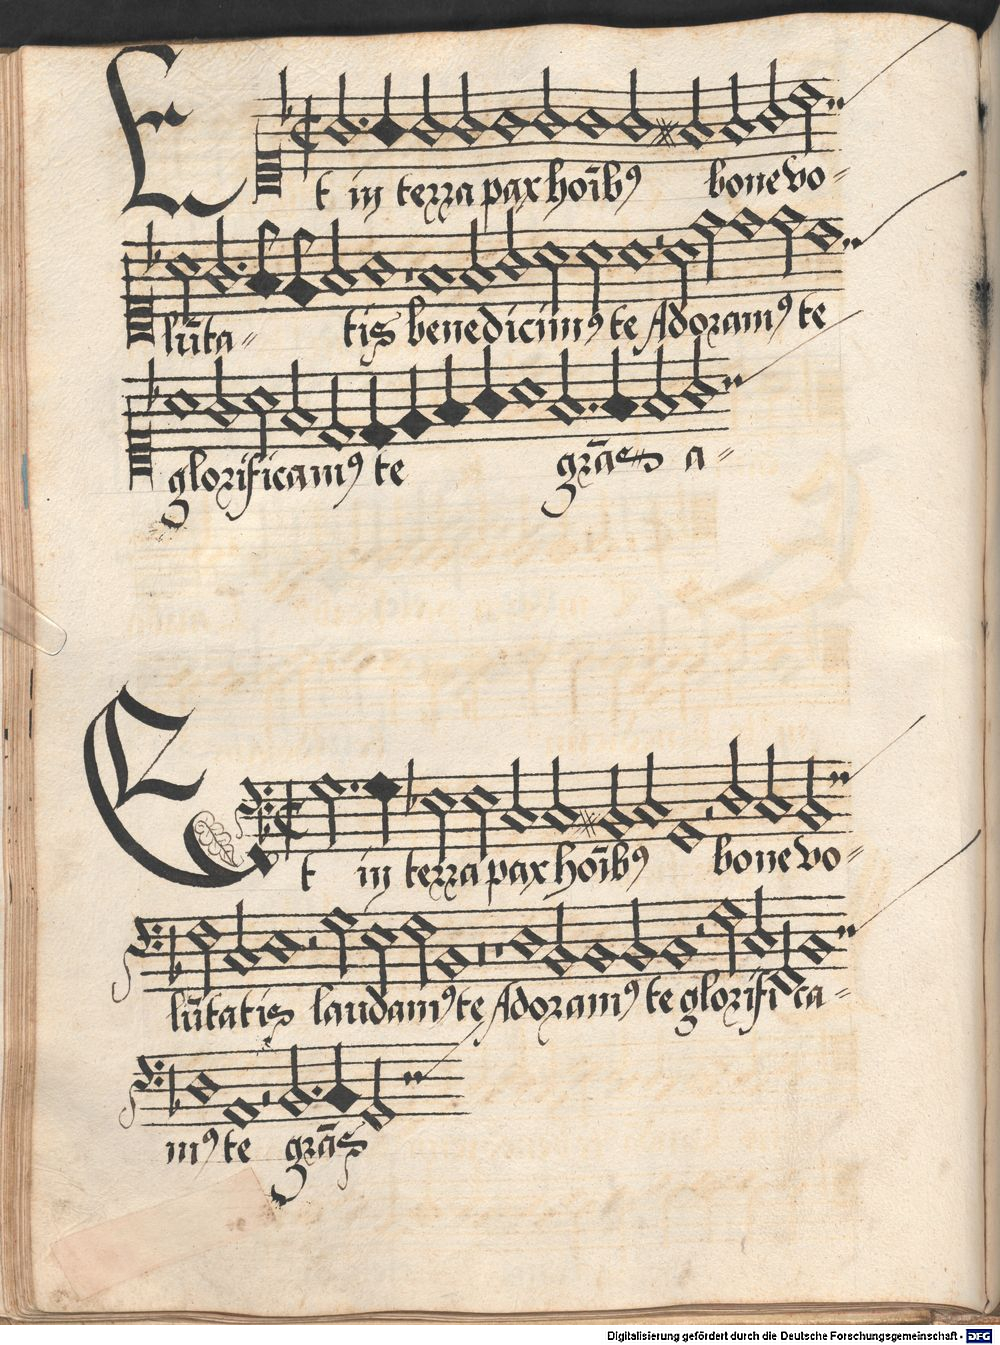 Et in terra pax hoībꝰ bone vo〃
lūta〃 tis benedicimꝰ te Adoramꝰ te
glorificamꝰ te gr̄as a〃
Et in terra pax hoībꝰ bone vo〃
lūtatis laudamꝰ te Adoramꝰ te glorifica〃
mꝰ te gr̄as
Digitalisierung gefördert durch die Deutsche Forschungsgemeinschaft - DFG